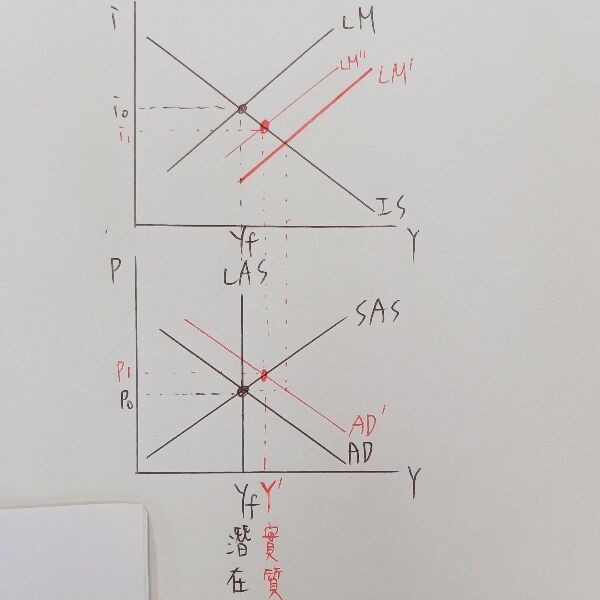 i
LM
LM"
LM'
i₀
i₁
IS
Yf
Y
P
LAS
SAS
P₁
P₀
AD'
AD
Y
Yf Y'
潛 實
在 質